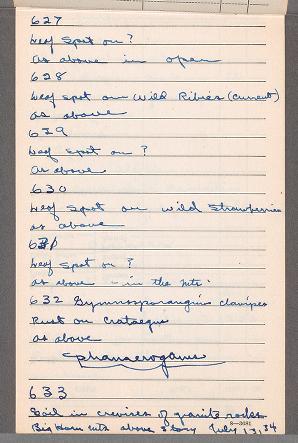 627
Leaf Spot on ?
as above in open
628
Leaf spot on Wild Ribies (current)
as above
629
Leaf Spot on ?
as above
630
Leaf Spot on wild strawberries
as above
631
Leaf Spot on ?
as above - in the mts.
632 Gymnosporangium clavipes
Rust on Crataegus
as above
phanerogams
633
Soil in crevices of granite rocks
8—3681
Big Horn mts above Story July 13, 34